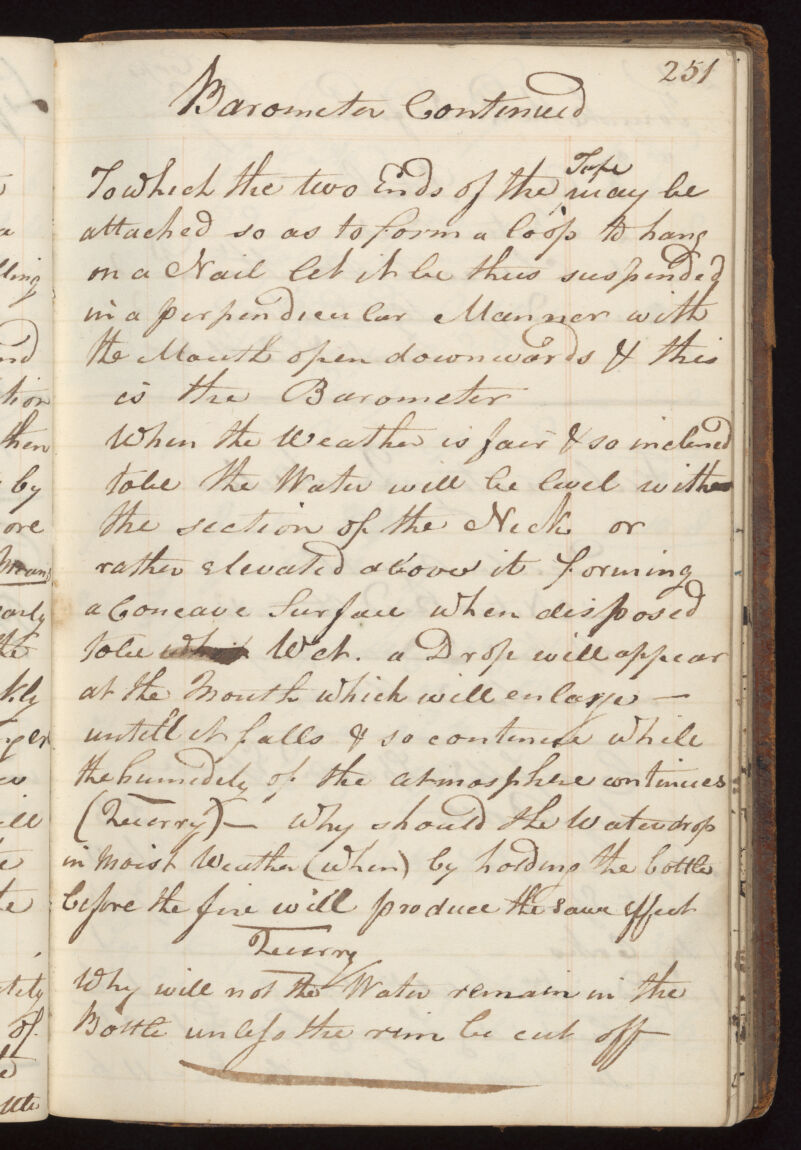 251
Barometer Continued
To which the two Ends of the Tape may be
attached so as to form a loop to hang
on a Nail let it be thus suspended
in a perpendicular Manner with
the Mouth open downwards & this
is the Barometer
When the Weather is fair & so inclined
to be the Water will be level with
the section of the Neck or
rather elevated above it forming
a Concave Surface when disposed
to be Wet. a Drop will appear
at the Mouth which will enlarge —
untill it falls & so continue while
the humidity of the atmosphere continues
(Querry) — Why should the Water drop
in Moist Weather (when) by holding the bottle
before the fire will produce the same effect
Querry
Why will not the Water remain in the
Bottle unless the rim be cut off